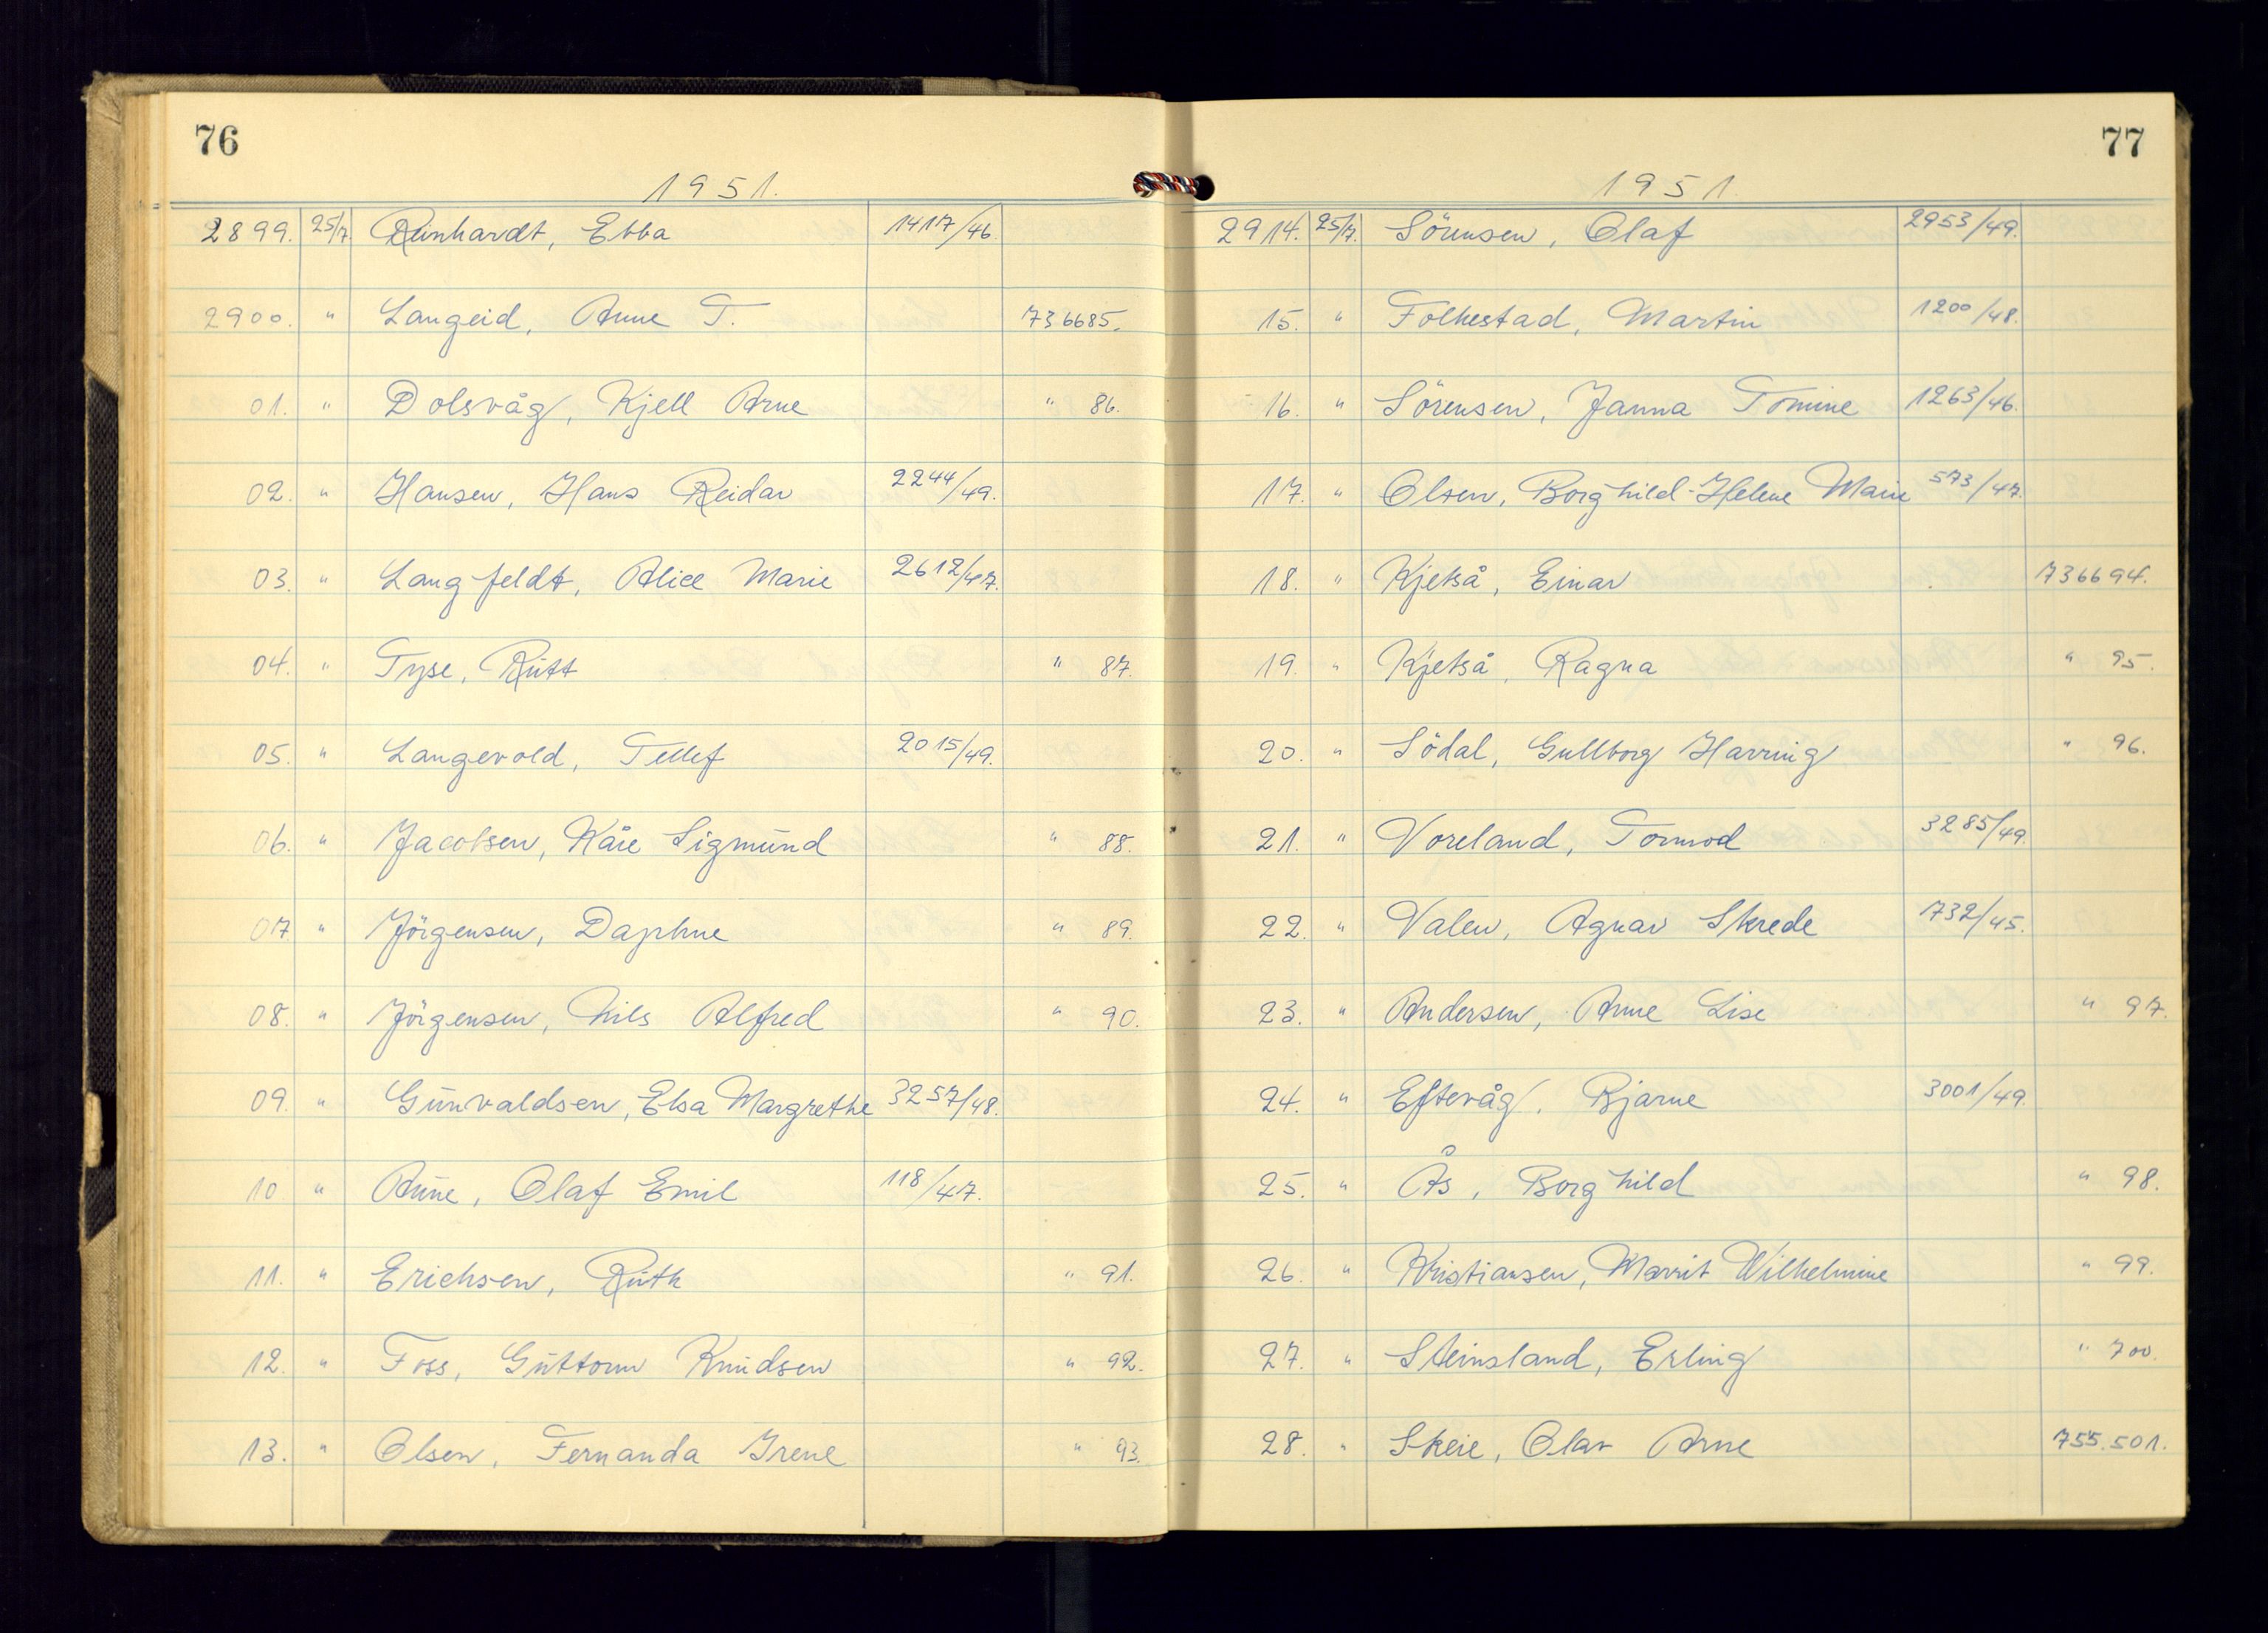 76
1951.
2899. 25/7. Reinhardt, Ebba 1417/46.
2900. " Langeid, Anne T. 736685.
01. " Dolsvåg, Kjell Arne " 86.
02. " Hansen, Hans Reidar 2244/49.
03. " Langfeldt, Alice Marie 2612/47.
04. " Tyse, Rutt " 87.
05. " Langevold, Tellef 2015/49.
06. " Jacobsen, Kåre Sigmund " 88.
07 " Jörgensen, Daphne " 89.
08. " Jörgensen, Nils Alfred " 90.
09. " Gunvaldsen, Elsa Margrethe 3257/48.
10 " Aune, Olaf Emil 118/47.
11. " Erichsen, Ruth " 91.
12. " Foss, Guttorm Knudsen " 92.
13. " Olsen, Fernanda Irene " 93.
77
1951.
2914. 25/7. Sörensen, Olaf 2953/49.
15. " Folkestad, Martin 1200/48.
16. " Sörensen, Janna Tomine 1263/46.
17. " Olsen, Borghild Helene Marie 573/47.
18. " Kjetså, Einar 736694.
19. " Kjetså, Ragna " 95.
20. " Södal, Gullborg Harring " 96.
21. " Voreland, Tormod 3285/49.
22. " Valen, Agnar Skrede 732/45.
23. " Andersen, Anne Lise " 97.
24. " Eftevåg, Bjarne 3001/49.
25. " Ås, Borghild " 98.
26. " Kristiansen, Marrit Wilhelmine " 99.
27. " Steinsland, Erling " 700.
28. " Skeie, Olav Arne 755.501.